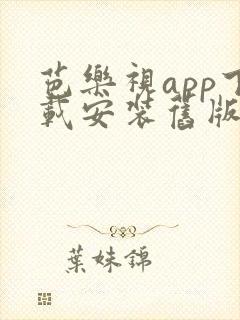 芭樂視app下
載安裝舊版
葉妹錦